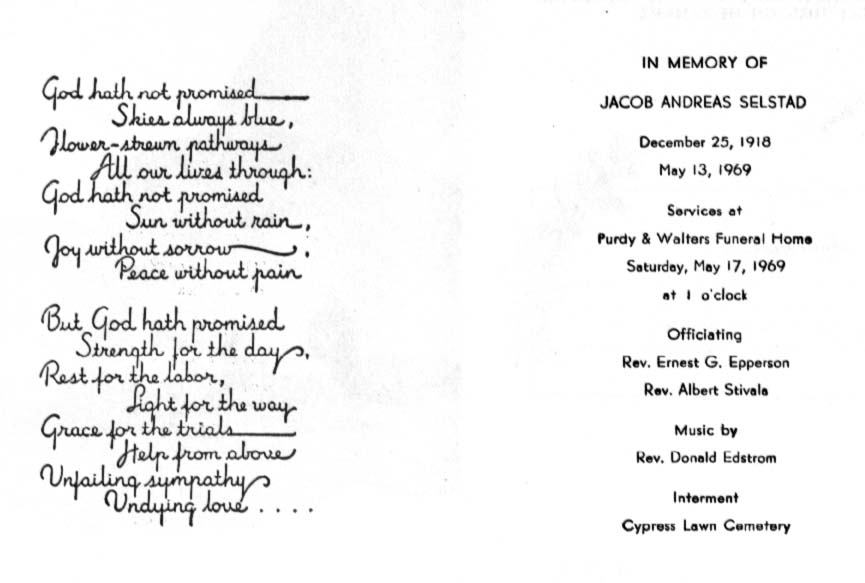 God hath not promised
Skies always blue,
Flower-strewn pathways
All our lives through:
God hath not promised
Sun without rain,
Joy without sorrow;
Peace without pain
But God hath promised
Strength for the day,
Rest for the labor,
Light for the way
Grace for the trials
Help from above
Unfailing sympathy
Undying love ....
IN MEMORY OF
JACOB ANDREAS SELSTAD
December 25, 1918
May 13, 1969
Services at
Purdy & Walters Funeral Home
Saturday, May 17, 1969
at 1 o'clock
Officiating
Rev. Ernest G. Epperson
Rev. Albert Stivala
Music by
Rev. Donald Edstrom
Interment
Cypress Lawn Cemetery